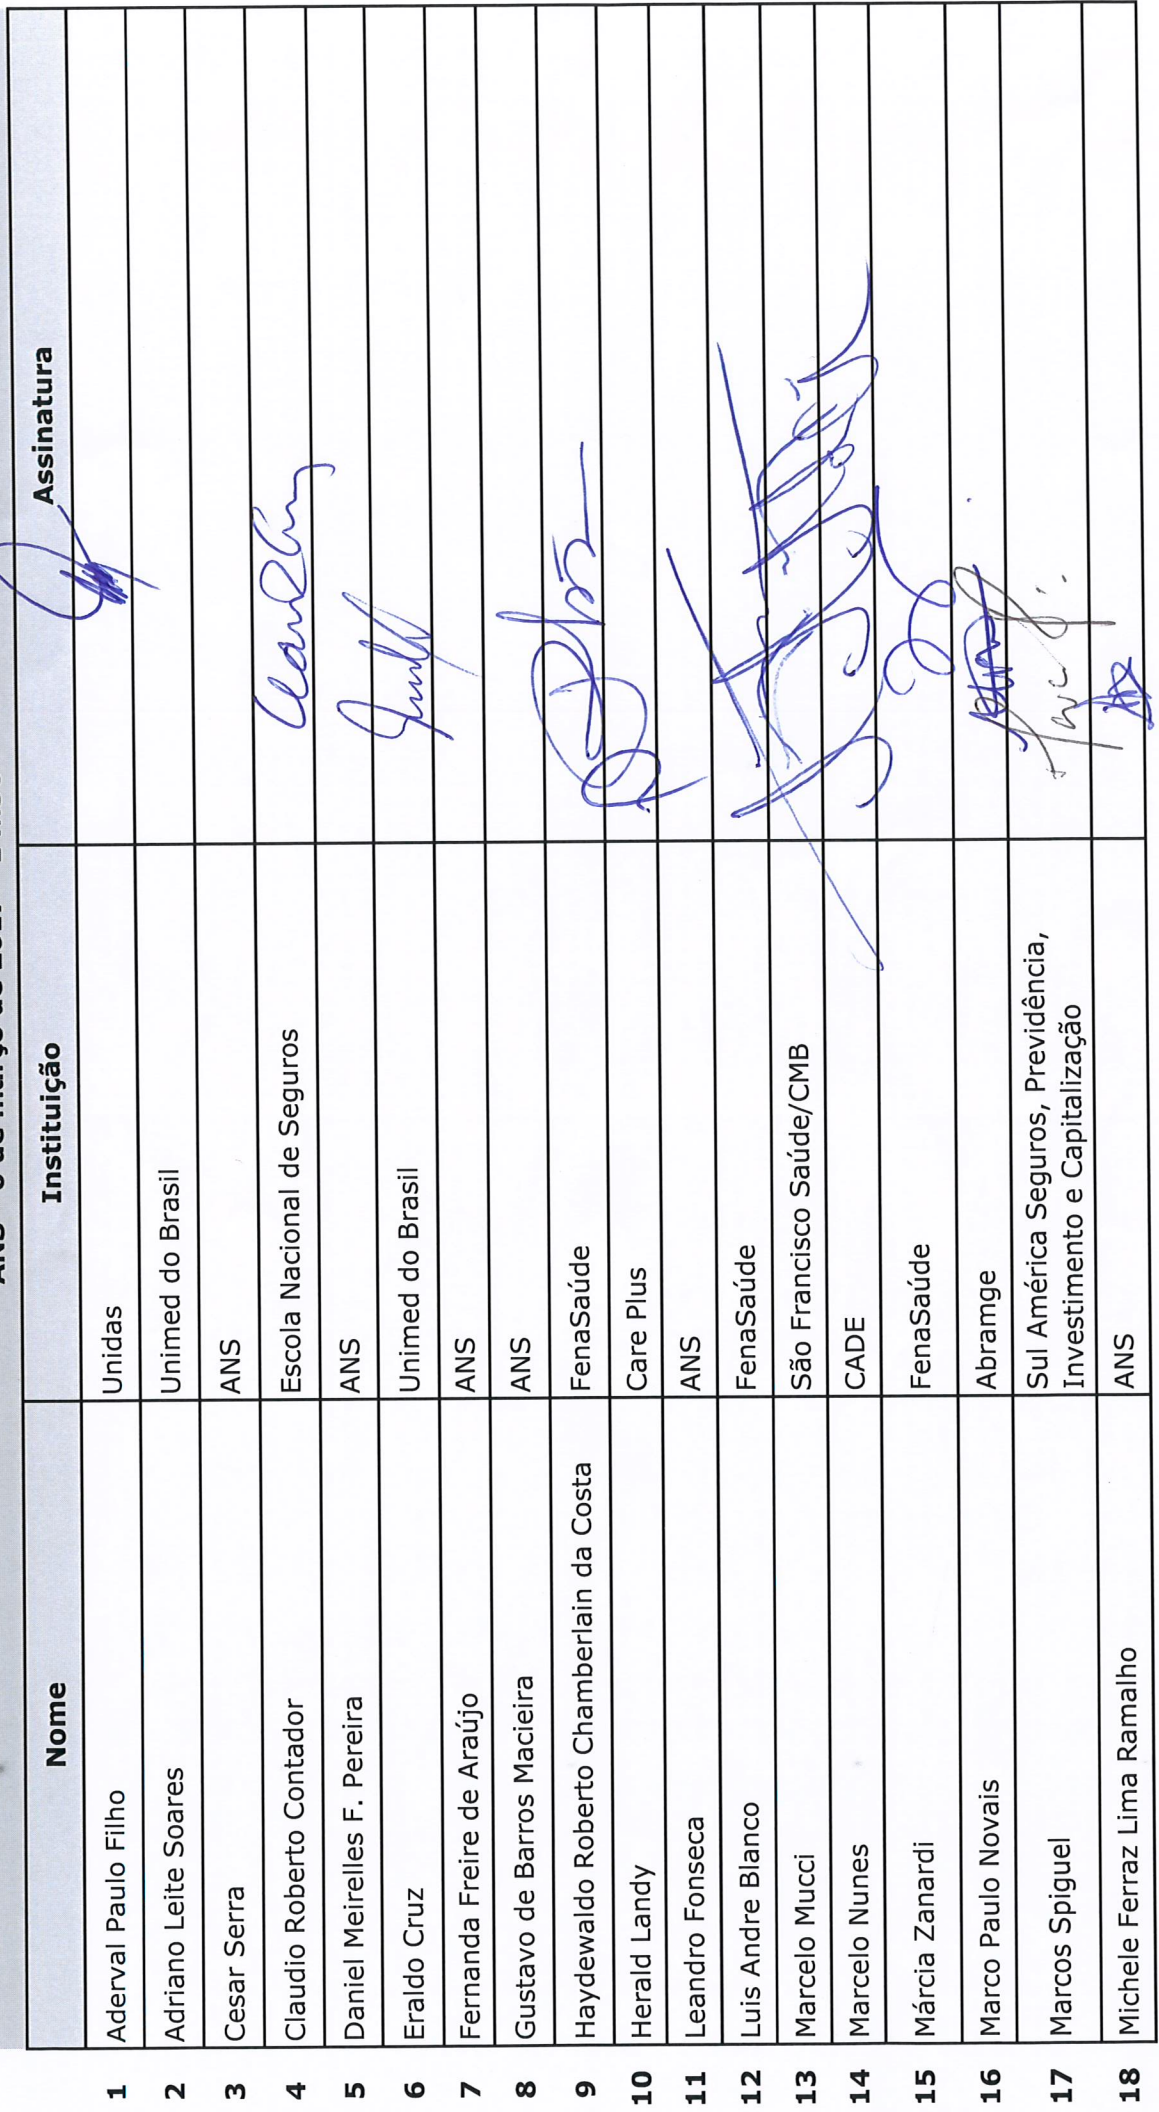 Nome Instituição Assinatura
1 Aderval Paulo Filho Unidas
2 Adriano Leite Soares Unimed do Brasil
3 Cesar Serra ANS
4 Claudio Roberto Contador Escola Nacional de Seguros
5 Daniel Meirelles F. Pereira ANS
6 Eraldo Cruz Unimed do Brasil
7 Fernanda Freire de Araújo ANS
8 Gustavo de Barros Macieira ANS
9 Haydewaldo Roberto Chamberlain da Costa FenaSaúde
10 Herald Landy Care Plus
11 Leandro Fonseca ANS
12 Luis Andre Blanco FenaSaúde
13 Marcelo Mucci São Francisco Saúde/CMB
14 Marcelo Nunes CADE
15 Márcia Zanardi FenaSaúde
16 Marco Paulo Novais Abramge
17 Marcos Spiguel Sul América Seguros, Previdência,
Investimento e Capitalização
18 Michele Ferraz Lima Ramalho ANS